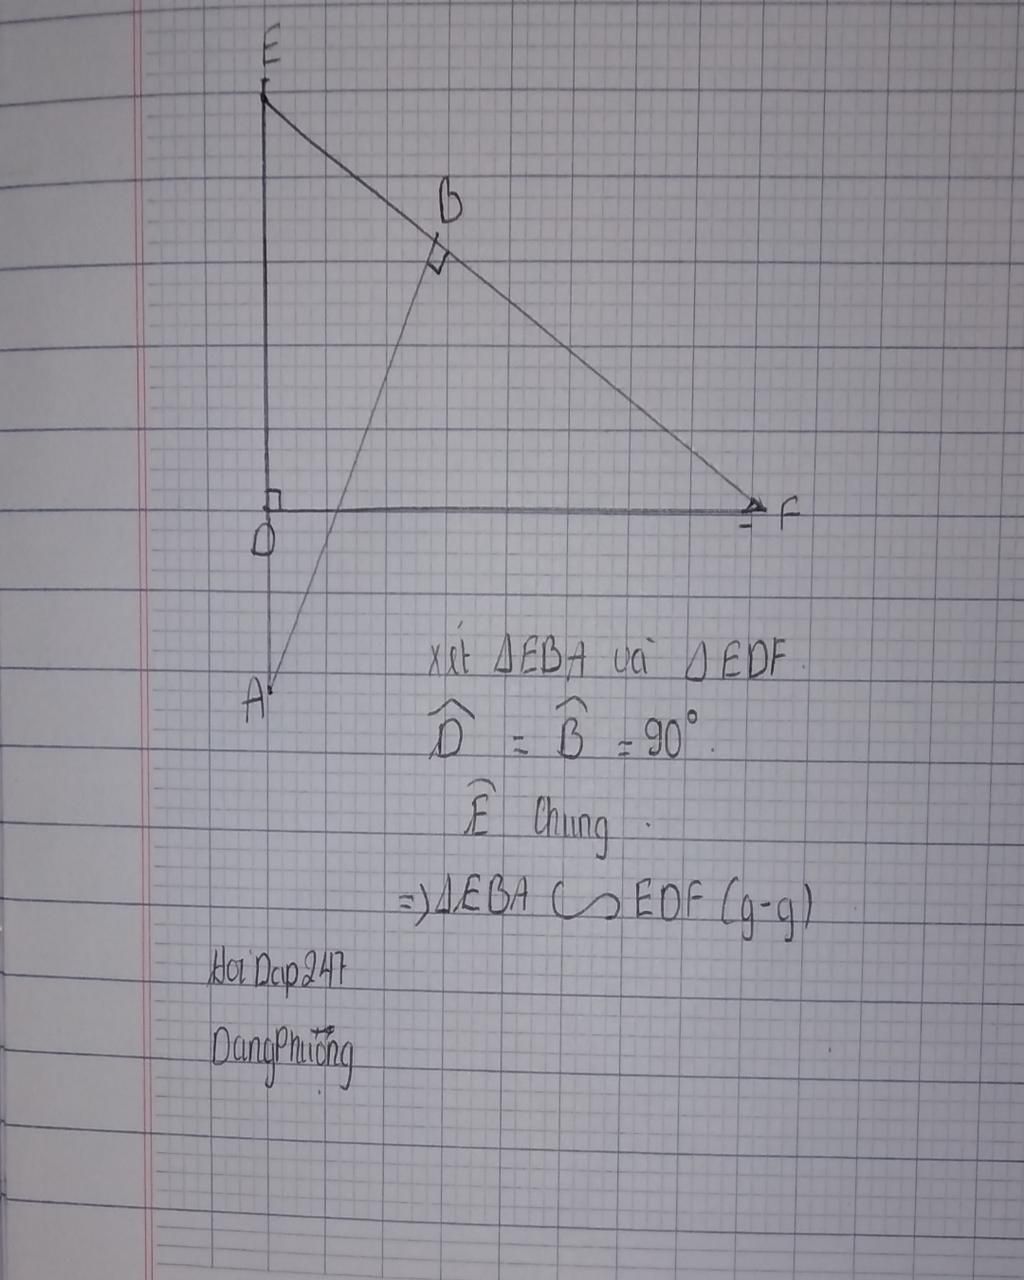 E
B
D
F
A
xét ΔEBA và ΔEDF.
D̂ = B̂ = 90°.
Ê Chung.
=> ΔEBA ∽ EDF (g-g)
HoiDap247
DangPhương